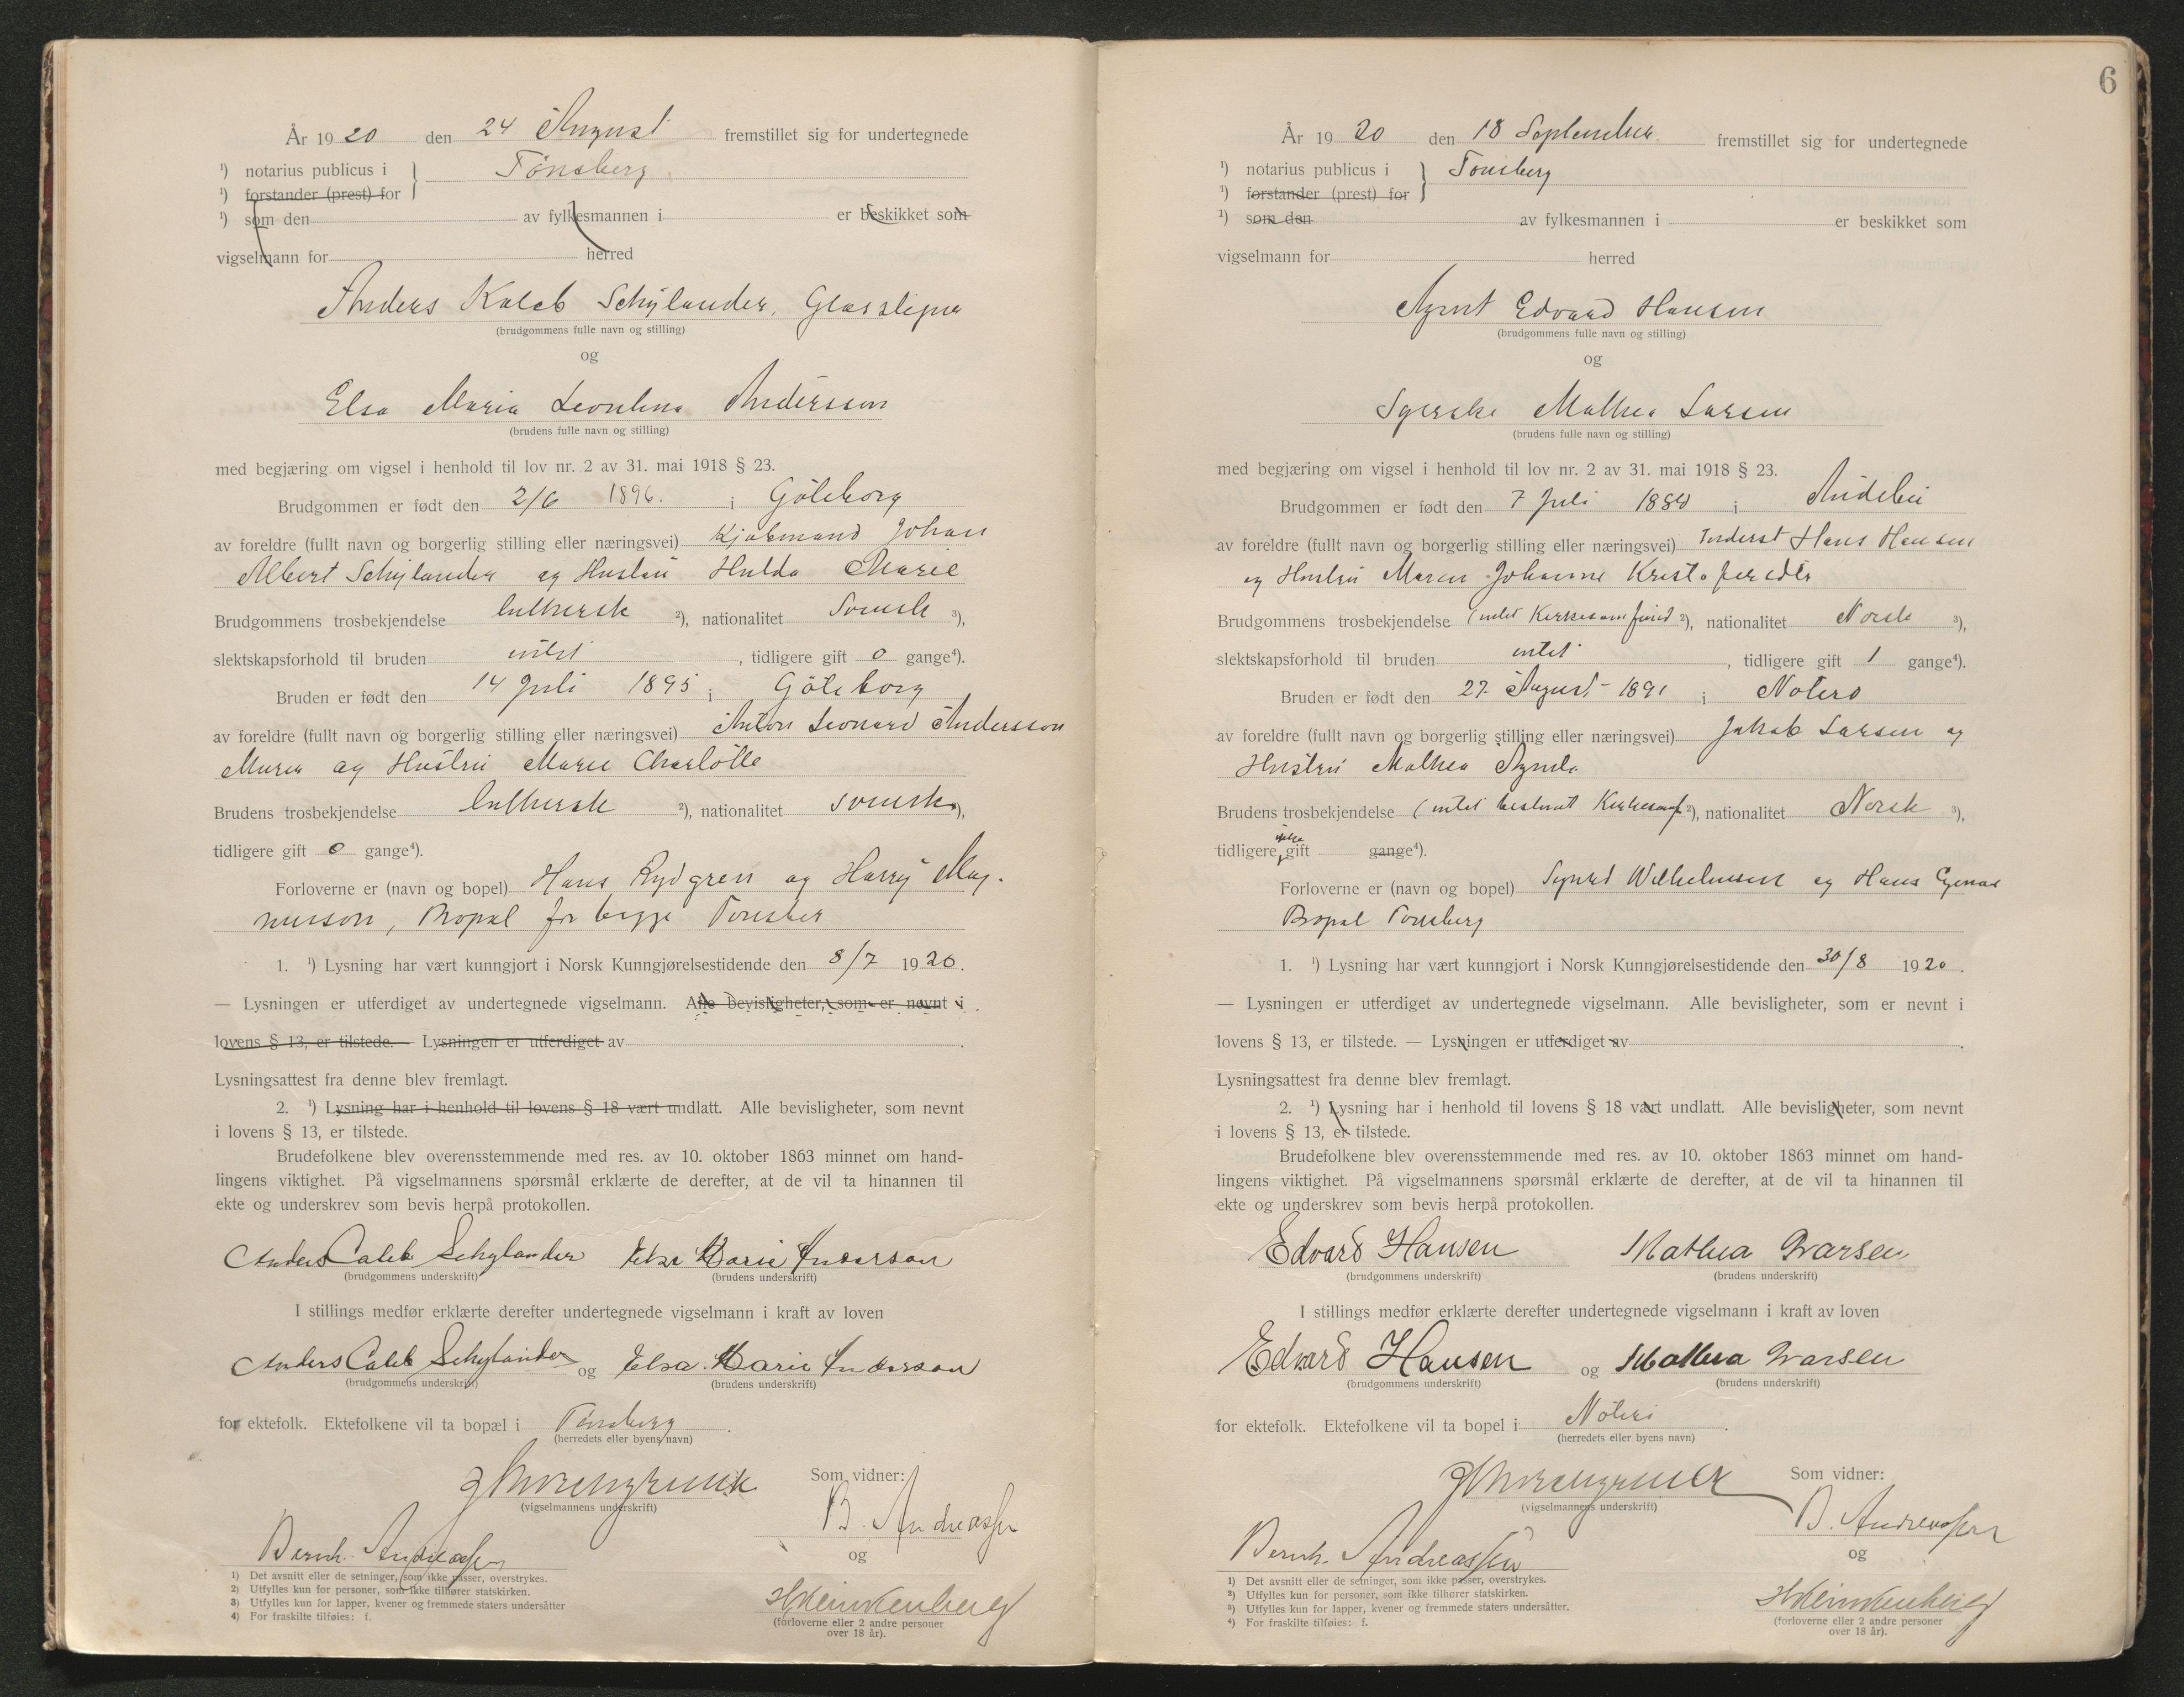 År 1920 den 24 August fremstillet sig for undertegnede
¹) notarius publicus i } Tönsberg
¹) forstander (prest) for
¹) som den av fylkesmannen i er beskikket som
vigselmann for herred
Anders Kaleb Schylander, Glassliper
(brudgommens fulle navn og stilling)
og
Elsa Maria Leontina Andersson
(brudens fulle navn og stilling)
med begjæring om vigsel i henhold til lov nr. 2 av 31. mai 1918 § 23.
Brudgommen er født den 2/6 1896. i Göteborg
av foreldre (fullt navn og borgerlig stilling eller næringsvei) Kjøbmand Johan
Albert Schylander og Hustru Hulda Marie
Brudgommens trosbekjendelse luthersk ²), nationalitet Svensk ³),
slektskapsforhold til bruden intet , tidligere gift 0 gange⁴).
Bruden er født den 14 Juli 1895 i Göteborg
av foreldre (fullt navn og borgerlig stilling eller næringsvei) Anton Leonard Andersson
Murer og Hustru Marie Charlotte
Brudens trosbekjendelse luthersk ²), nationalitet svensk ³),
tidligere gift 0 gange⁴).
Forloverne er (navn og bopel) Hans Rydgren og Harry Mag-
nusson, Bopæl for begge Tønsber
1. ¹) Lysning har vært kunngjort i Norsk Kunngjørelsestidende den 8/7 1920.
— Lysningen er utferdiget av undertegnede vigselmann. Alle bevisligheter, som er nevnt i
lovens § 13, er tilstede. — Lysningen er utferdiget av
Lysningsattest fra denne blev fremlagt.
2. ¹) Lysning har i henhold til lovens § 18 vært undlatt. Alle bevisligheter, som nevnt
i lovens § 13, er tilstede.
Brudefolkene blev overensstemmende med res. av 10. oktober 1863 minnet om hand-
lingens viktighet. På vigselmannens spørsmål erklærte de derefter, at de vil ta hinannen til
ekte og underskrev som bevis herpå protokollen.
Anders Caleb Schylander Elsa Maria Anderson
(brudgommens underskrift) (brudens underskrift)
I stillings medfør erklærte derefter undertegnede vigselmann i kraft av loven
Anders Caleb Schylander og Elsa Maria Anderson
(brudgommens underskrift) (brudens underskrift)
for ektefolk. Ektefolkene vil ta bopæl i Tønsberg.
(herredets eller byens navn)
Som vidner:
(vigselmannens underskrift)
B. Andreassen
og
Bernh. Andreassen
(forloverne eller 2 andre personer
over 18 år).
1) Det avsnitt eller de setninger, som ikke passer, overstrykes.
2) Utfylles kun for personer, som ikke tilhører statskirken.
3) Utfylles kun for lapper, kvener og fremmede staters undersåtter
4) For fraskilte tilføies: f.
6
År 1920 den 18 September fremstillet sig for undertegnede
¹) notarius publicus i } Tønsberg
¹) forstander (prest) for
¹) som den av fylkesmannen i er beskikket som
vigselmann for herred
Agnnt Edvard Hansen
(brudgommens fulle navn og stilling)
og
Syerske Mathea Larsen
(brudens fulle navn og stilling)
med begjæring om vigsel i henhold til lov nr. 2 av 31. mai 1918 § 23.
Brudgommen er født den 7 Juli 1880 i Andebu
av foreldre (fullt navn og borgerlig stilling eller næringsvei) Inderst Hans Hansen
og Hustru Maren Johanne Kristofersdtr
Brudgommens trosbekjendelse (intet Kirkesamfund ²), nationalitet Norsk ³),
slektskapsforhold til bruden intet , tidligere gift 1 gange⁴).
Bruden er født den 27. August 1891 i Nøterø
av foreldre (fullt navn og borgerlig stilling eller næringsvei) Jakob Larsen og
Hustru Mathea Agnete
Brudens trosbekjendelse (intet bestemt Kirkesamf ²), nationalitet Norsk ³),
tidligere ikke gift gange⁴).
Forloverne er (navn og bopel) Sigurd Wilhelmsen og Hans
Bopæl Tønsberg
1. ¹) Lysning har vært kunngjort i Norsk Kunngjørelsestidende den 30/8 1920.
— Lysningen er utferdiget av undertegnede vigselmann. Alle bevisligheter, som er nevnt i
lovens § 13, er tilstede. — Lysningen er utferdiget av
Lysningsattest fra denne blev fremlagt.
2. ¹) Lysning har i henhold til lovens § 18 vært undlatt. Alle bevisligheter, som nevnt
i lovens § 13, er tilstede.
Brudefolkene blev overensstemmende med res. av 10. oktober 1863 minnet om hand-
lingens viktighet. På vigselmannens spørsmål erklærte de derefter, at de vil ta hinannen til
ekte og underskrev som bevis herpå protokollen.
Edvard Hansen Mathea Larsen
(brudgommens underskrift) (brudens underskrift)
I stillings medfør erklærte derefter undertegnede vigselmann i kraft av loven
Edvard Hansen og Mathea Larsen
(brudgommens underskrift) (brudens underskrift)
for ektefolk. Ektefolkene vil ta bopel i Nøterø.
(herredets eller byens navn)
Som vidner:
(vigselmannens underskrift)
B. Andreassen
og
Bernh. Andreassen
(forloverne eller 2 andre personer
over 18 år).
1) Det avsnitt eller de setninger, som ikke passer, overstrykes.
2) Utfylles kun for personer, som ikke tilhører statskirken.
3) Utfylles kun for lapper, kvener og fremmede staters undersåtter.
4) For fraskilte tilføies: f.